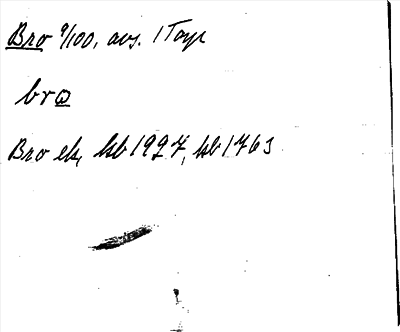 Bro 9/100, avs. 1 Torp
bro
Bro ek, hb 1927, hb 1763